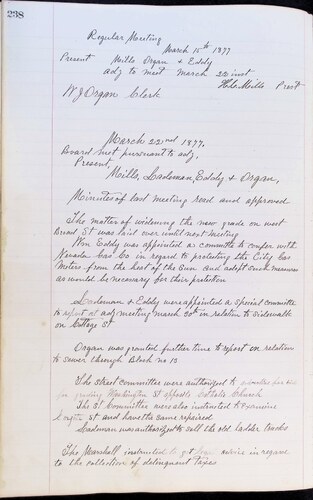 238
Regular Meeting
March 15th 1897
Present Mills Organ & Eddy
adj to meet March 22 inst
Mills Prest
W J Organ Clerk
March 22nd 1897,
Board met pursuant to adj,
Present,
Mills, Ladsman, Eddy & Organ,
Minutes of last meeting read and approved
The matter of widening the new grade on west
Broad St was laid over until next meeting
Wm Eddy was appointed a committe to confer with
Nevada Gas Co in regard to protecting the City Gas
Meters from the heat of the Sun and adopt such measures
as would be necessary for their protection
Ladsman & Eddy were appointed a special committee
to report at adj meeting March 30th in relation to sidewalk
on Cottage St
Organ was granted further time to report in relation
to sewer through Block no 13
The street committee were authorized to
for graveling Washington St opposite Catholic Church
The St Committee were also instructed to examine
St and have the same repaired
Ladsman was authorized to sell the old ladder trucks
The Marshall instructed to get advice in regard
to the collection of delinquent taxes